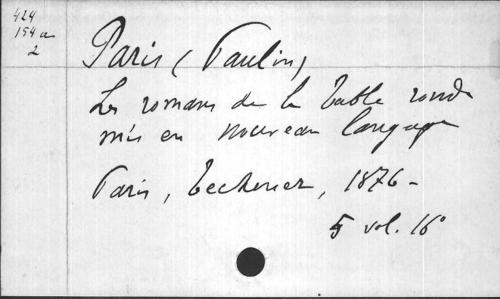 424
154 a
2
Paris (Paulin)
Les romans de la Table ronde
mis en nouveau langage
Paris, Techener, 1876-
5 vol. 16°